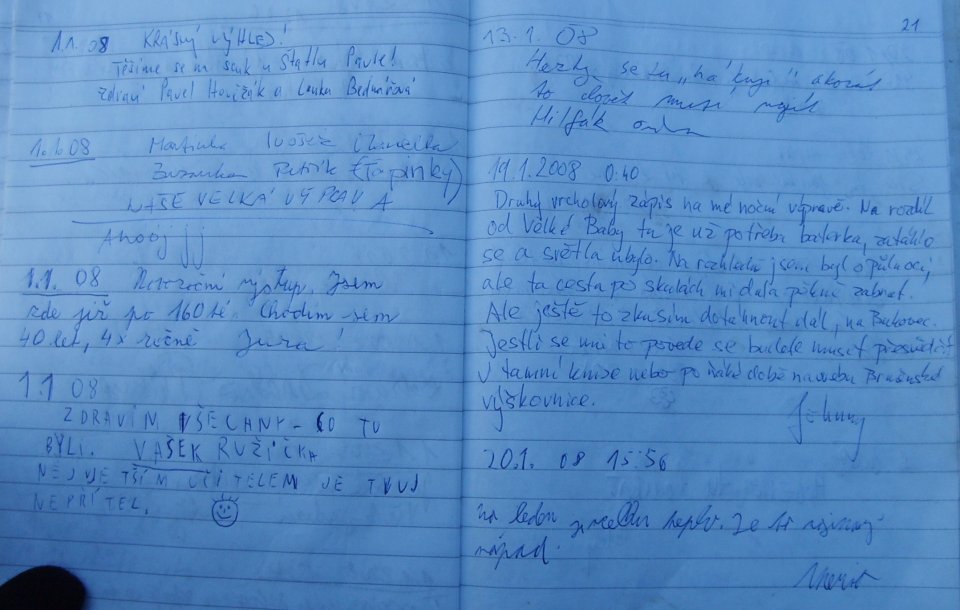 1.1. 08 KRÁSNÝ VÝHLED!
Těšíme se na u Štatlu Pavle!
Zdraví Pavel a Lenka Bednářová
1.1.08 Martinka
Zuzanka Patrik (Ťapinky)
NAŠE VELKÁ VÝPRAVA
Ahooj jj
1.1. 08 Novoroční výstup. Jsem
zde již po 160 té. Chodím sem
40 let, 4x ročně Jura!
1.1 08
ZDRAVÍM VŠECHNY - CO TU
BYLI. VAŠEK RUŽIČKA
NEJVJETŠÍM UČITELEM JE TVUJ
NEPŘÍTEL.
21
13.1. 08
Hezky se tu „
to
19.1.2008 0.40
Druhý vrcholový zápis na mé noční výpravě. Na rozdíl
od Velké Baby tu je už potřeba baterka, zatáhlo
se a světla ubylo. Na rozhledu jsem byl o půlnoci,
ale ta cesta po skalách mi dala pěkně zabrat.
Ale ještě to zkusím dotáhnout dál, na Bukovec.
Jestli se mi to povede se budete muset přesvědčit
v tamní knize nebo po ňáké době na webu Brněnské
výškovnice.
Johnny
20.1. 08 15:56
na leden teplo. Je to
nápad.